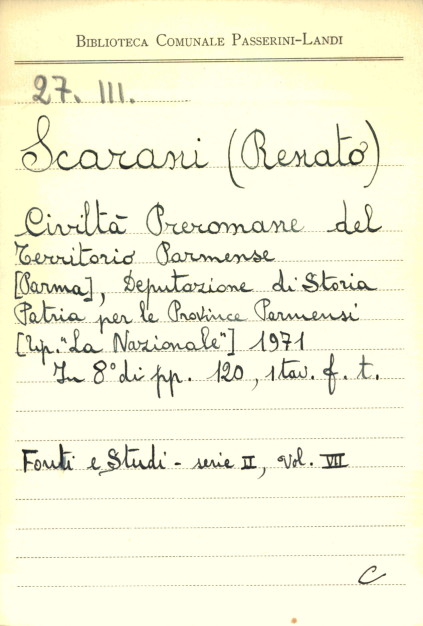 Biblioteca Comunale Passerini-Landi
27. III.
Scarani (Renato)
Civiltà Preromane del
Territorio Parmense
[Parma], Deputazione di Storia
Patria per le Province Parmensi
[tip. "La Nazionale"] 1971
In 8° di pp. 120, 1 tav. f. t.
Fonti e Studi - serie II, vol. VII
C